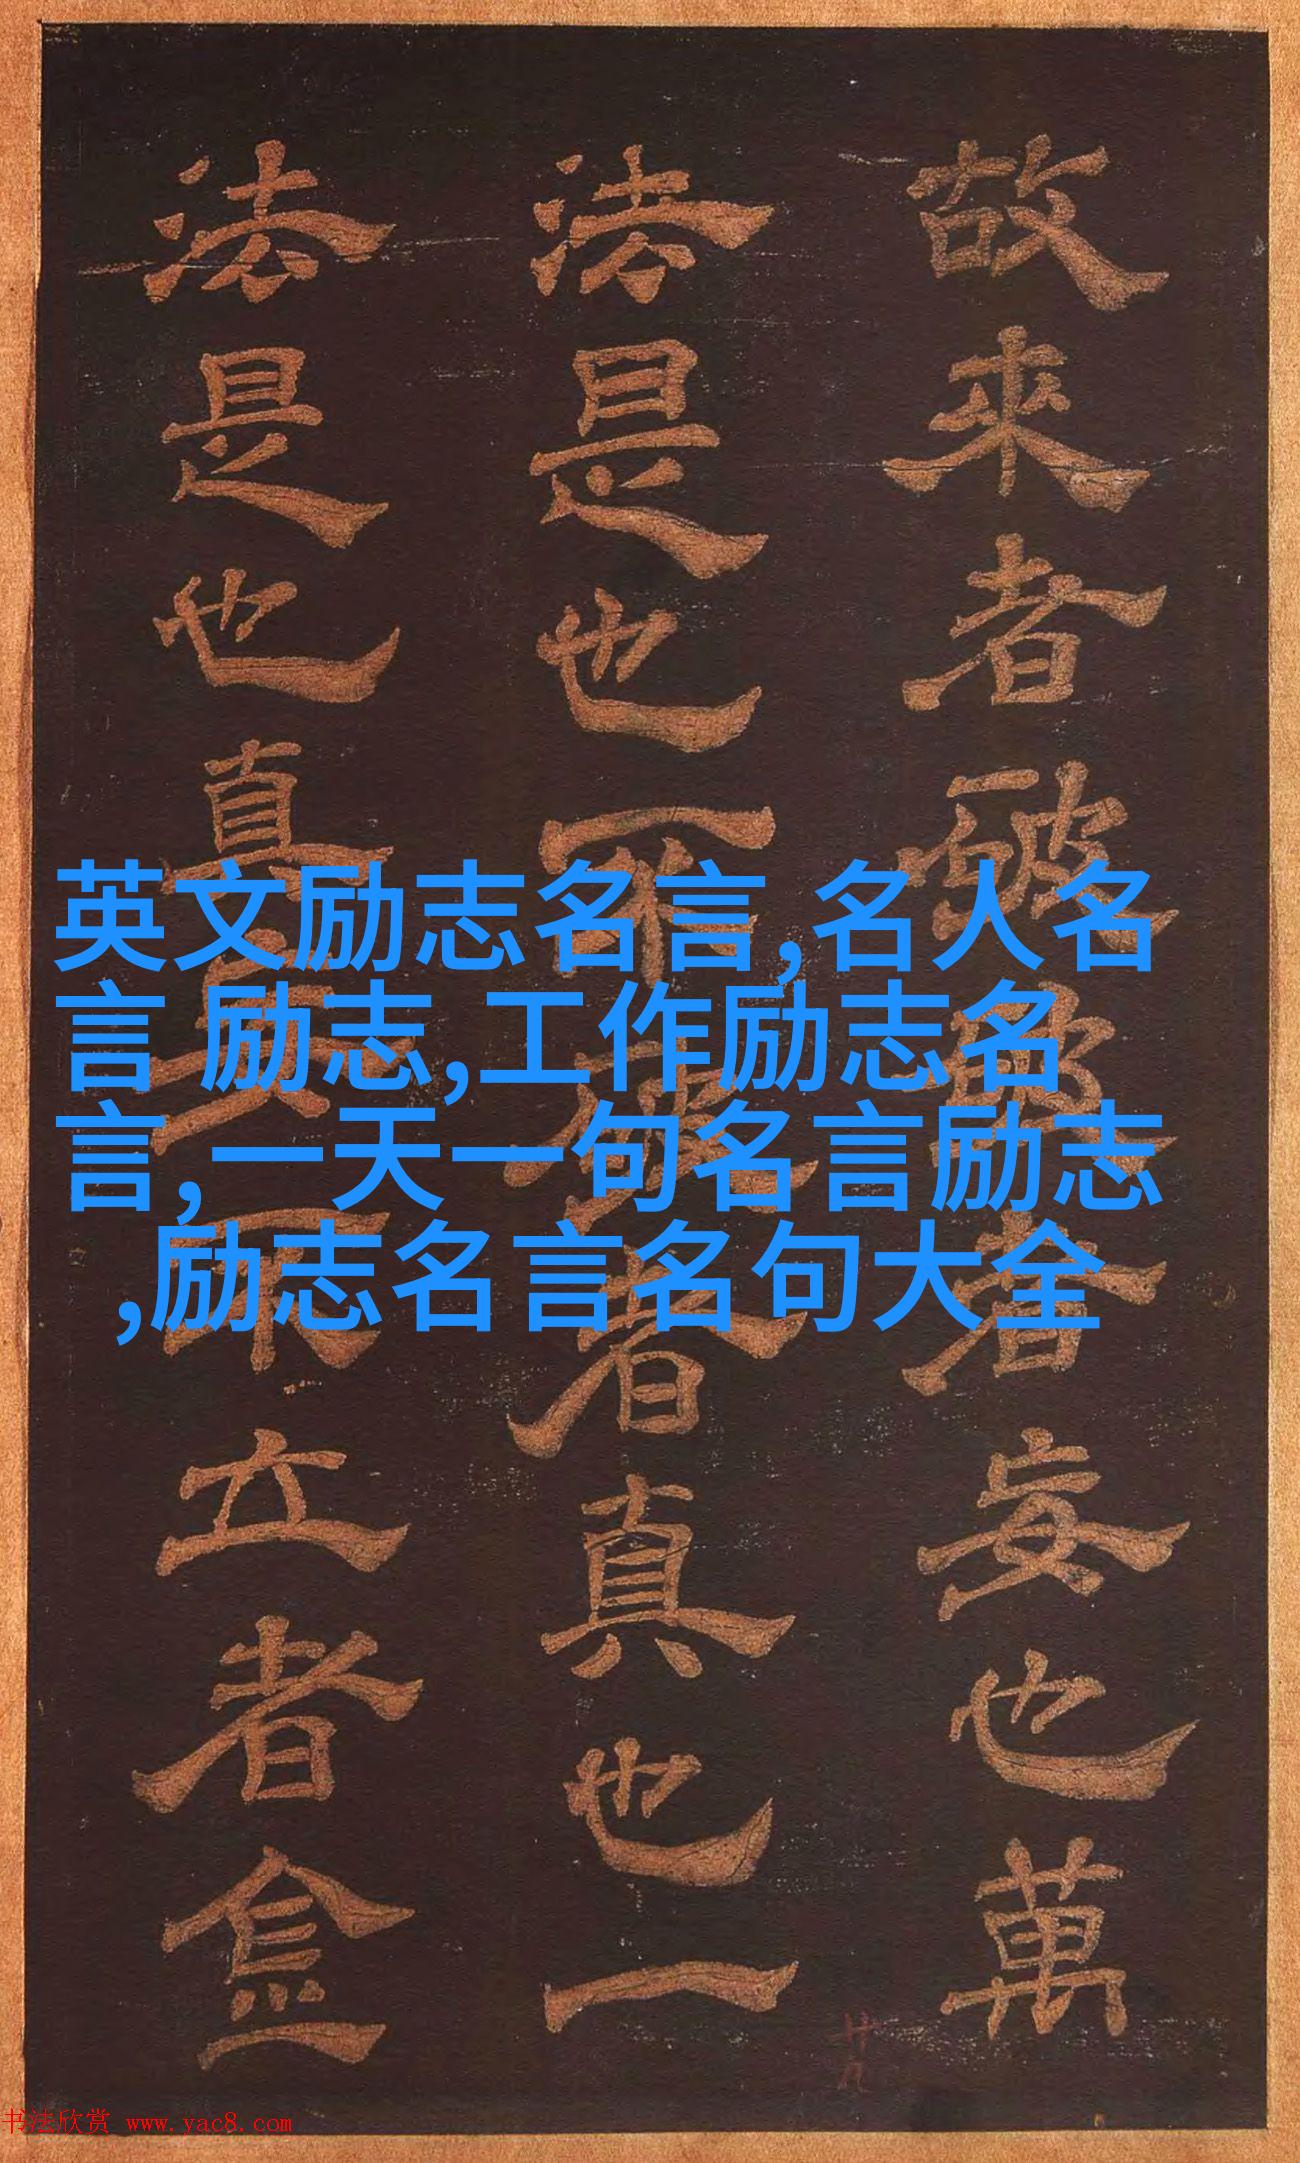 英文励志名言,名人名
言 励志,工作励志名
言,一天一句名言励志
,励志名言名句大全
故来者破
者妄也萬
法是也不
者真也一
法是也真
立者僉
廿九
书法欣赏 www.yac8.com